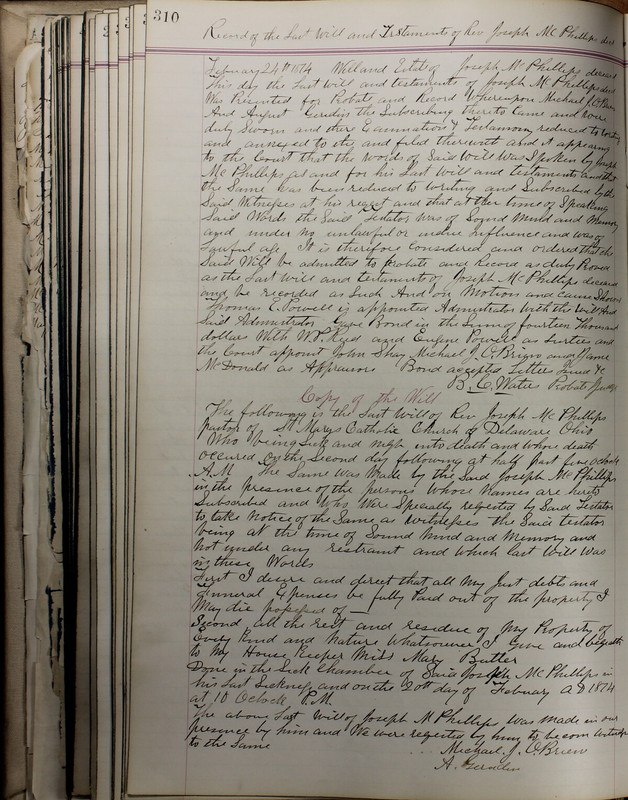 310
Record of the Last Will and Testaments of Rev Joseph McPhillips decd
February 24th 1874 Will and Estate of Joseph McPhillips deceased
This day the last will and testaments of Joseph McPhillips decd
Was Presented for Probate and Record Whereupon Michael J. O'Brien
And August the Subscribing thereto Came and were
duly Sworn and there Examination & Testamony reduced to writing
and annexed to etc and filed therewith and it appearing
to the Court that the Words of Said Will Was Spoken by Joseph
McPhillips as and for his Last Will and testaments and that
the Same was been reduced to writing and Subscribed by the
Said Witnesses at his reqest and that at the time of Speaking
Said Words the Said Testator was of Sound Mind and Memory
and under no unlawful or undue Influence and was of
Lawful age It is therefore Considered and ordered that the
Said Will be admitted to probate and Record as duly Proved
as the Last Will and testaments of Joseph McPhillips deceased
and be recorded as Such And on Motion and Cause Shown
Thomas E. Powell is appointed Admistrator With the Will And
Said Admistrator Gave Bond in the Sum of fourteen Thousand
dollars With W.P. Reid and Eugene Powell as Surties and
the Court appoint John Shay Michael J. O'Brien and
McDonald as Appraisors Bond accepted Letters Issued &c
B. C. Waters Probate Judge
Copy of the Will
The following is the Last Will of Rev Joseph McPhillips
pastor of St Marys Catholic Church of Delaware Ohio
Who being Sick and nigh unto death and whose death
occured on the Second day following at half past five Oclock
A.M. The Same was Made by the Said Joseph McPhillips
in the presence of the persons Whose Names are hereto
Subscribed and Who Were Specially reqested by Said Testator
to take Notice of the Same as Witnesses the Said testator
being at the time of Sound Mind and Memory and
Not under any restraint and which last Will was
in these Words
First I desire and direct that all My Just debts and
Funeral Expenses be fully Paid out of the property I
May die possessed of —
Second all the rest and residue of My Property of
Every Kind and Nature Whatsoever I give and beqeath
to My House Keeper Miss Mary Butler
Done in the Sick Chamber of Said Joseph McPhillips in
his Last Sickness and on the 20th day of Febuary A D 1874
at 10 Oclock P.M.
The above Last Will of Joseph McPhillips Was made in our
presence by him and We were reqested by him to becom Witnesses
to the Same
Michael. J. O.Brien
A.